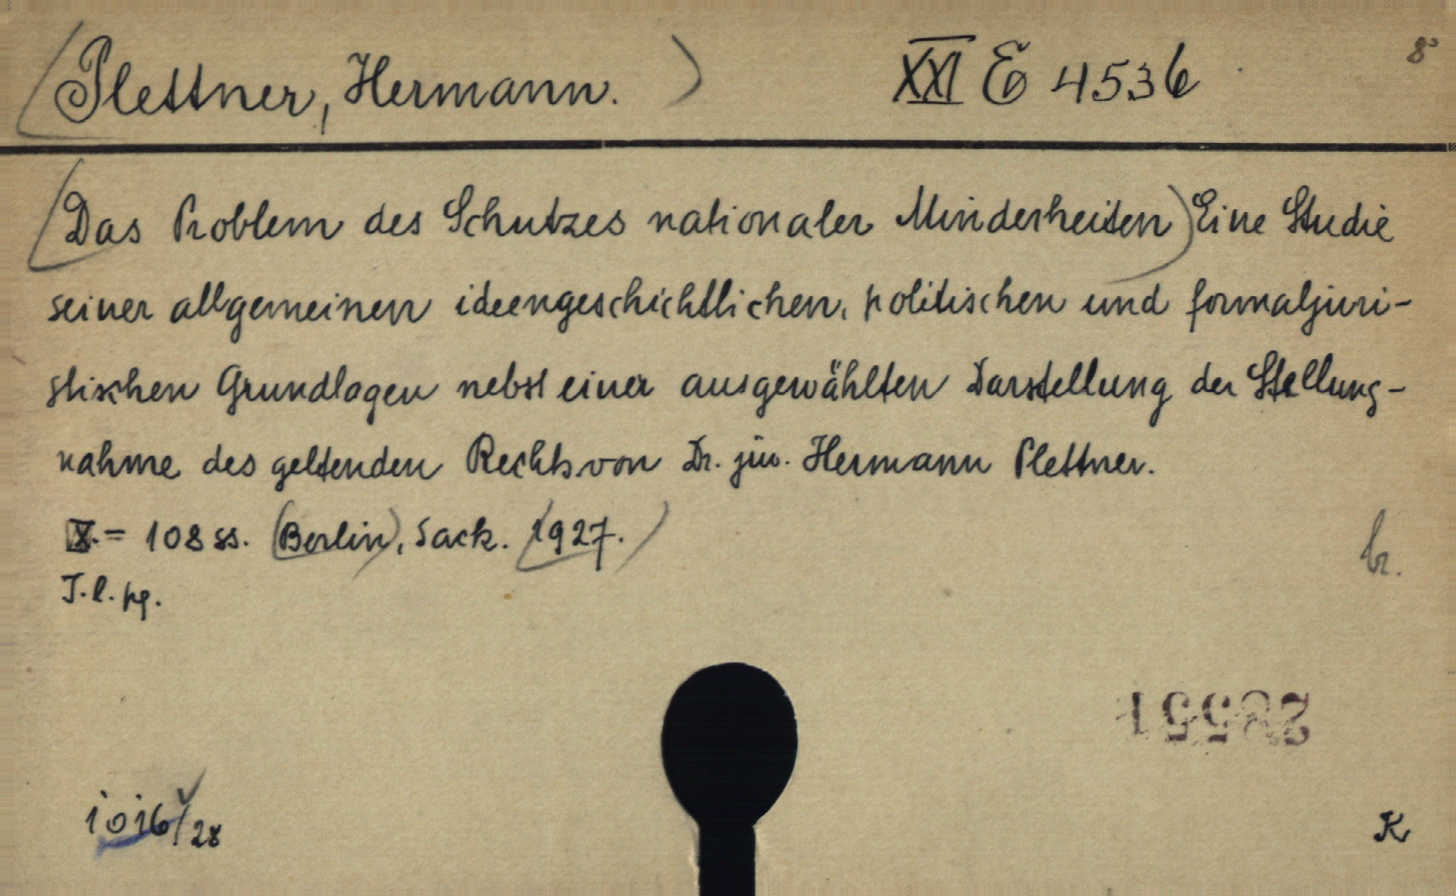 (Plettner, Hermann.) XXI E 4536 8°
(Das Problem des Schutzes nationaler Minderheiten) Eine Studie
seiner allgemeinen ideengeschichtlichen, politischen und formaljuri-
stischen Grundlagen nebst einer ausgewählten Darstellung der Stellung-
nahme des geltenden Rechts von Dr. jur. Hermann Plettner.
X. = 108 ss. (Berlin), Sack. (1927.)
br.
T. l. pg.
28551
1016/28
K